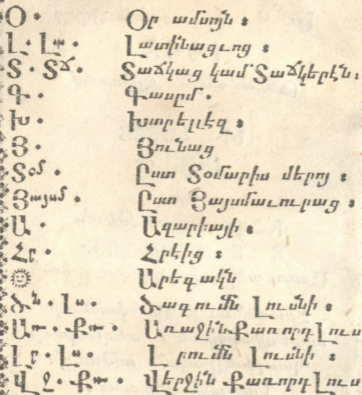 Օ · Օր ամսոյն ։
Լ · Լտ · Լատինացւոց ։
Տ · Տճ · Տաճկաց կամ Տաճկերէն ։
Գ · Գասըմ ·
Խ · Խտրէլլէզ ։
Յ · Յունաց
Տօմ · Ըստ Տօմարիս մերոյ ։
Յայսմ · Ըստ Յայսմաւուրաց ։
Ա · Ազարիայի ։
Հր · Հրէից ։
Արեգակն
Ծն · Լս · Ծագումն Լուսնի ։
Առ · Քռ · Առաջին Քառորդ Լուս
Լր · Լս · Լրումն Լուսնի ։
Վջ · Քռ · Վերջին Քառորդ Լուս